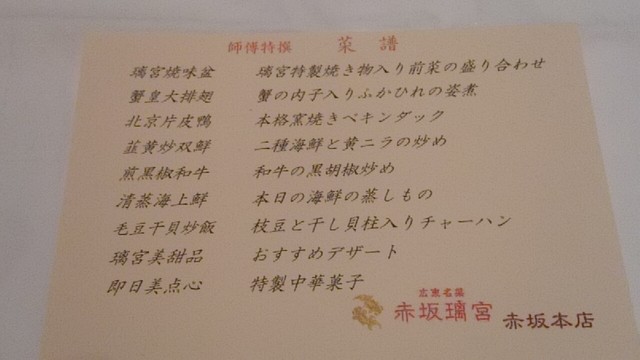 師傅特撰 菜譜
璃宮燒味盆 璃宮特製焼き物入り前菜の盛り合わせ
蟹皇大排翅 蟹の内子入りふかひれの姿煮
北京片皮鴨 本格窯焼きペキンダック
韮黄炒双鮮 二種海鮮と黄ニラの炒め
煎黒椒和牛 和牛の黒胡椒炒め
清蒸海上鮮 本日の海鮮の蒸しもの
毛豆干貝炒飯 枝豆と干し貝柱入りチャーハン
璃宮美甜品 おすすめデザート
即日美点心 特製中華菓子
広東名菜
赤坂璃宮 赤坂本店